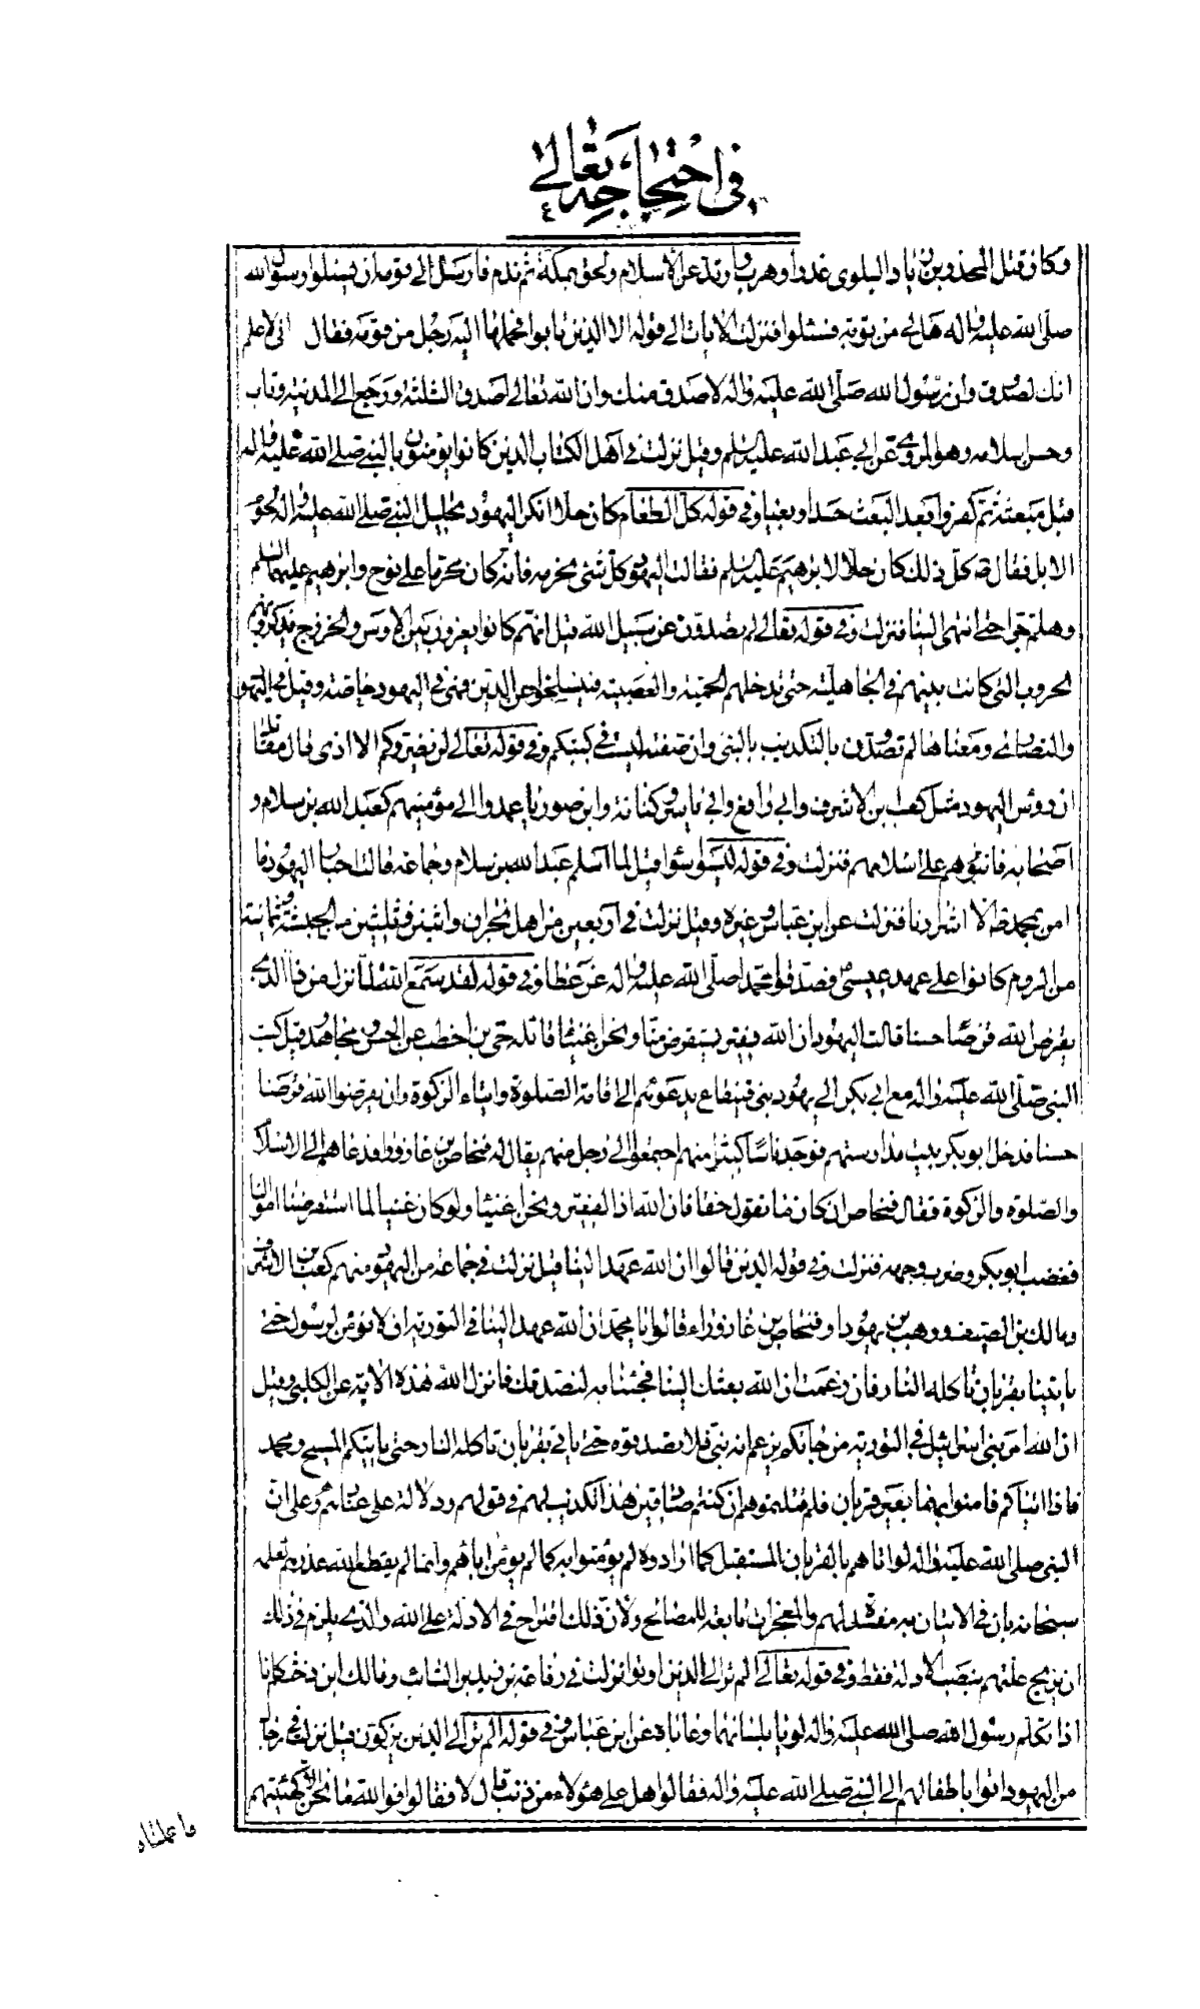 في احتجاجه تعالى
وكان قتل المحذر بن زياد البلوى غدرا وهرب وارتد عن الاسلام ولحق بمكة ثم ندم فارسل الى قومه ان يسئلوا رسول الله
صلى الله عليه واله هل لي من توبة فسئلوا فنزلت الايات الى قوله الا الذين تابوا فحملها اليه رجل من قومه فقال اني لاعلم
انك لصدوق وان رسول الله صلى الله عليه واله لاصدق منك وان الله تعالى اصدق الثلثة ورجع الى المدينة وتاب
وحسن اسلامه وهو المروي عن ابي عبد الله عليه السلم وقيل نزلت في اهل الكتاب الذين كانوا يؤمنون بالنبي صلى الله عليه واله
قبل مبعثه ثم كفروا بعد البعث حسدا وبغيا وفي قوله كل الطعام كان حلا انكر اليهود تحليل النبي صلى الله عليه واله لحوم
الابل فقال ص كل ذلك كان حلا لابرهيم عليه السلم فقالت اليهود كل شئ نحرمه فانه كان محرما على نوح وابرهيم عليهما السلم
وهلم جرا حتى انتهى الينا فنزلت وفي قوله تعالى لم تصدون عن سبيل الله قيل انهم كانوا يغرون بين الاوس والخزرج بتذكيرهم
الحروب التي كانت بينهم في الجاهلية حتى تدخلهم الحمية والعصبية فينسلخوا عن الدين فهي في اليهود خاصة وقيل في اليهود
والنصارى ومعناها لم تصدون بالتكذيب بالنبي وان صفته ليست في كتبكم وفي قوله تعالى لن يضروكم الا اذى قال مقاتل
ان رؤس اليهود مثل كعب بن الاشرف وابي رافع وابي ياسر وكنانة وابن صوريا عمدوا الى مؤمنيهم كعبد الله بن سلام و
اصحابه فانبوهم على اسلامهم فنزلت وفي قوله ليسوا سواء قيل لما اسلم عبد الله بن سلام وجماعة قالت احبار اليهود ما
امن بمحمد ص الا اشرارنا فنزلت عن ابن عباس وغيره وقيل نزلت في اربعين من اهل نجران واثنين وثلثين من الحبشة وثمانية
من الروم كانوا على عهد عيسى فصدقوا محمدا صلى الله عليه واله عن عطا وفي قوله لقد سمع الله لما نزل من ذا الذي
يقرض الله قرضا حسنا قالت اليهود ان الله فقير يستقرض منا ونحن اغنياء قائله حي بن اخطب عن الحسن ومجاهد وقيل كتب
النبي صلى الله عليه واله مع ابي بكر الى يهود بني قينقاع يدعوهم الى اقامة الصلوة وايتاء الزكوة وان يقرضوا الله قرضا
حسنا فدخل ابو بكر بيت مدارستهم فوجد ناسا كثيرا منهم اجتمعوا الى رجل منهم يقال له فنحاص بن عازورا فدعاهم الى الاسلام
والصلوة والزكوة فقال فنحاص ان كان ما تقول حقا فان الله اذا لفقير ونحن اغنياء ولو كان غنيا لما استقرضنا اموالنا
فغضب ابو بكر وضرب وجهه فنزلت وفي قوله الذين قالوا ان الله عهد الينا قيل نزلت في جماعة من اليهود منهم كعب بن الاشرف
ومالك بن الصيف ووهب بن يهودا وفنحاص بن عازوراء قالوا يا محمد ان الله عهد الينا في التورية ان لا نؤمن لرسول حتى
ياتينا بقربان تاكله النار فان زعمت ان الله بعثك الينا فجئنا به لنصدقك فانزل الله هذه الاية عن الكلبي وقيل
ان الله امر بني اسرائيل في التورية من جائكم يزعم انه نبي فلا تصدقوه حتى ياتي بقربان تاكله النار حتى ياتيكم المسيح ومحمد
فاذا اتياكم فامنوا بهما بغير قربان فلم قتلتموهم ان كنتم صادقين هذا تكذيب لهم في قولهم ودلالة على عنادهم وعلى ان
النبي صلى الله عليه واله لو اتاهم بالقربان المستقبل كما ارادوه لم يؤمنوا به كما لم يؤمن اباؤهم وانما لم يقطع الله عذرهم لعلمه
سبحانه بان في الاتيان به مفسدة لهم والمعجزات تابعة للمصالح ولان ذلك اقتراح في الادلة على الله والذي يلزم في ذلك
ان يزيح علتهم بنصب الادلة فقط وفي قوله تعالى الم تر الى الذين اوتوا نزلت في رفاعة بن زيد بن السائب ومالك ابن دخشم كانا
اذا تكلم رسول الله صلى الله عليه واله لويا بلسانهما وعاباه عن ابن عباس وفي قوله الم تر الى الذين يزكون قيل نزلت في رجال
من اليهود اتوا باطفالهم الى النبي صلى الله عليه واله فقالوا هل على هؤلاء من ذنب قال لا فقالوا فوالله ما نحن الا كهيئتهم
ما عملناه